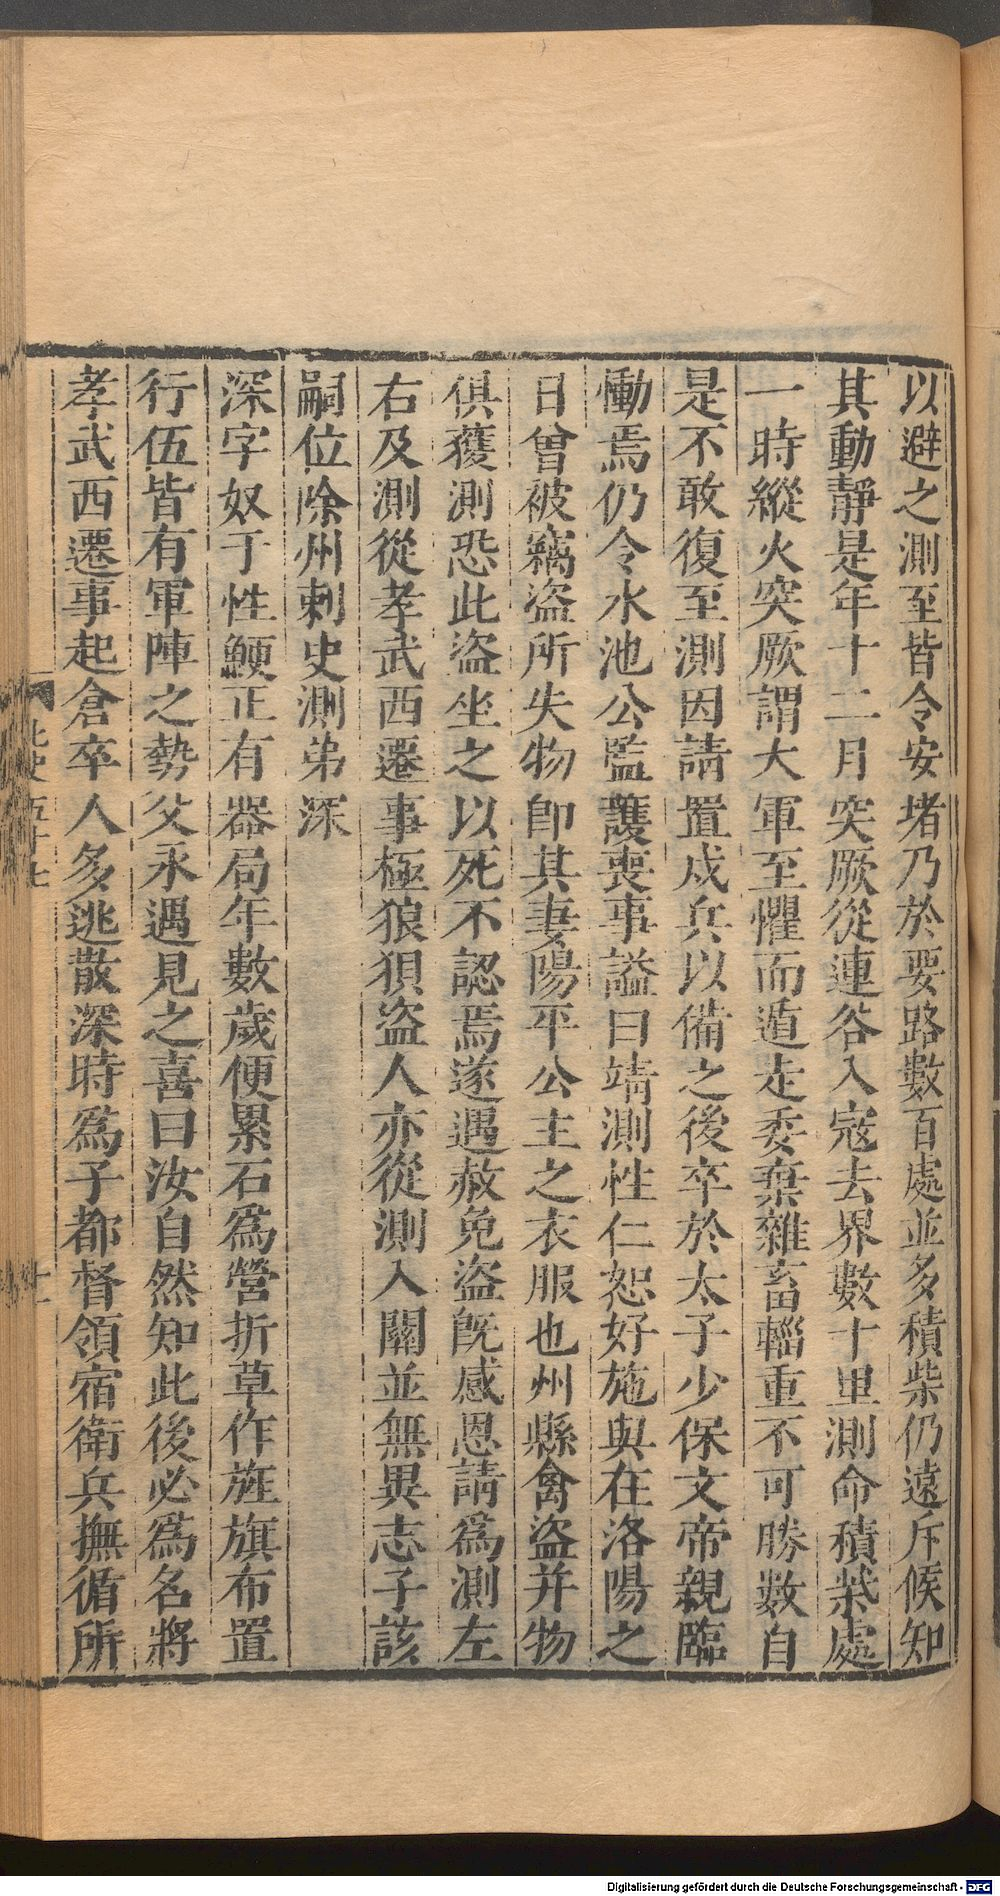 以避之測至皆令安堵乃於要路數百處並多積柴仍遠斥候知
其動靜是年十二月突厥從連谷入寇去界數十里測命積柴處
一時縱火突厥謂大軍至懼而遁走委棄雜畜輜重不可勝數自
是不敢復至測因請置戍兵以備之後卒於太子少保文帝親臨
慟焉仍令水池公監護喪事謚曰靖測性仁恕好施與在洛陽之
日曾被竊盜所失物卽其妻陽平公主之衣服也州縣禽盜并物
俱獲測恐此盜坐之以死不認焉遂遇赦免盜旣感恩請爲測左
右及測從孝武西遷事極狼狽盜人亦從測入關並無異志子該
嗣位除州刺史測弟深
深字奴于性鯁正有器局年數歲便累石爲營折草作旌旗布置
行伍皆有軍陣之勢父永遇見之喜曰汝自然知此後必爲名將
孝武西遷事起倉卒人多逃散深時爲子都督領宿衛兵撫循所
北史五十七
十一
Digitalisierung gefördert durch die Deutsche Forschungsgemeinschaft - DFG